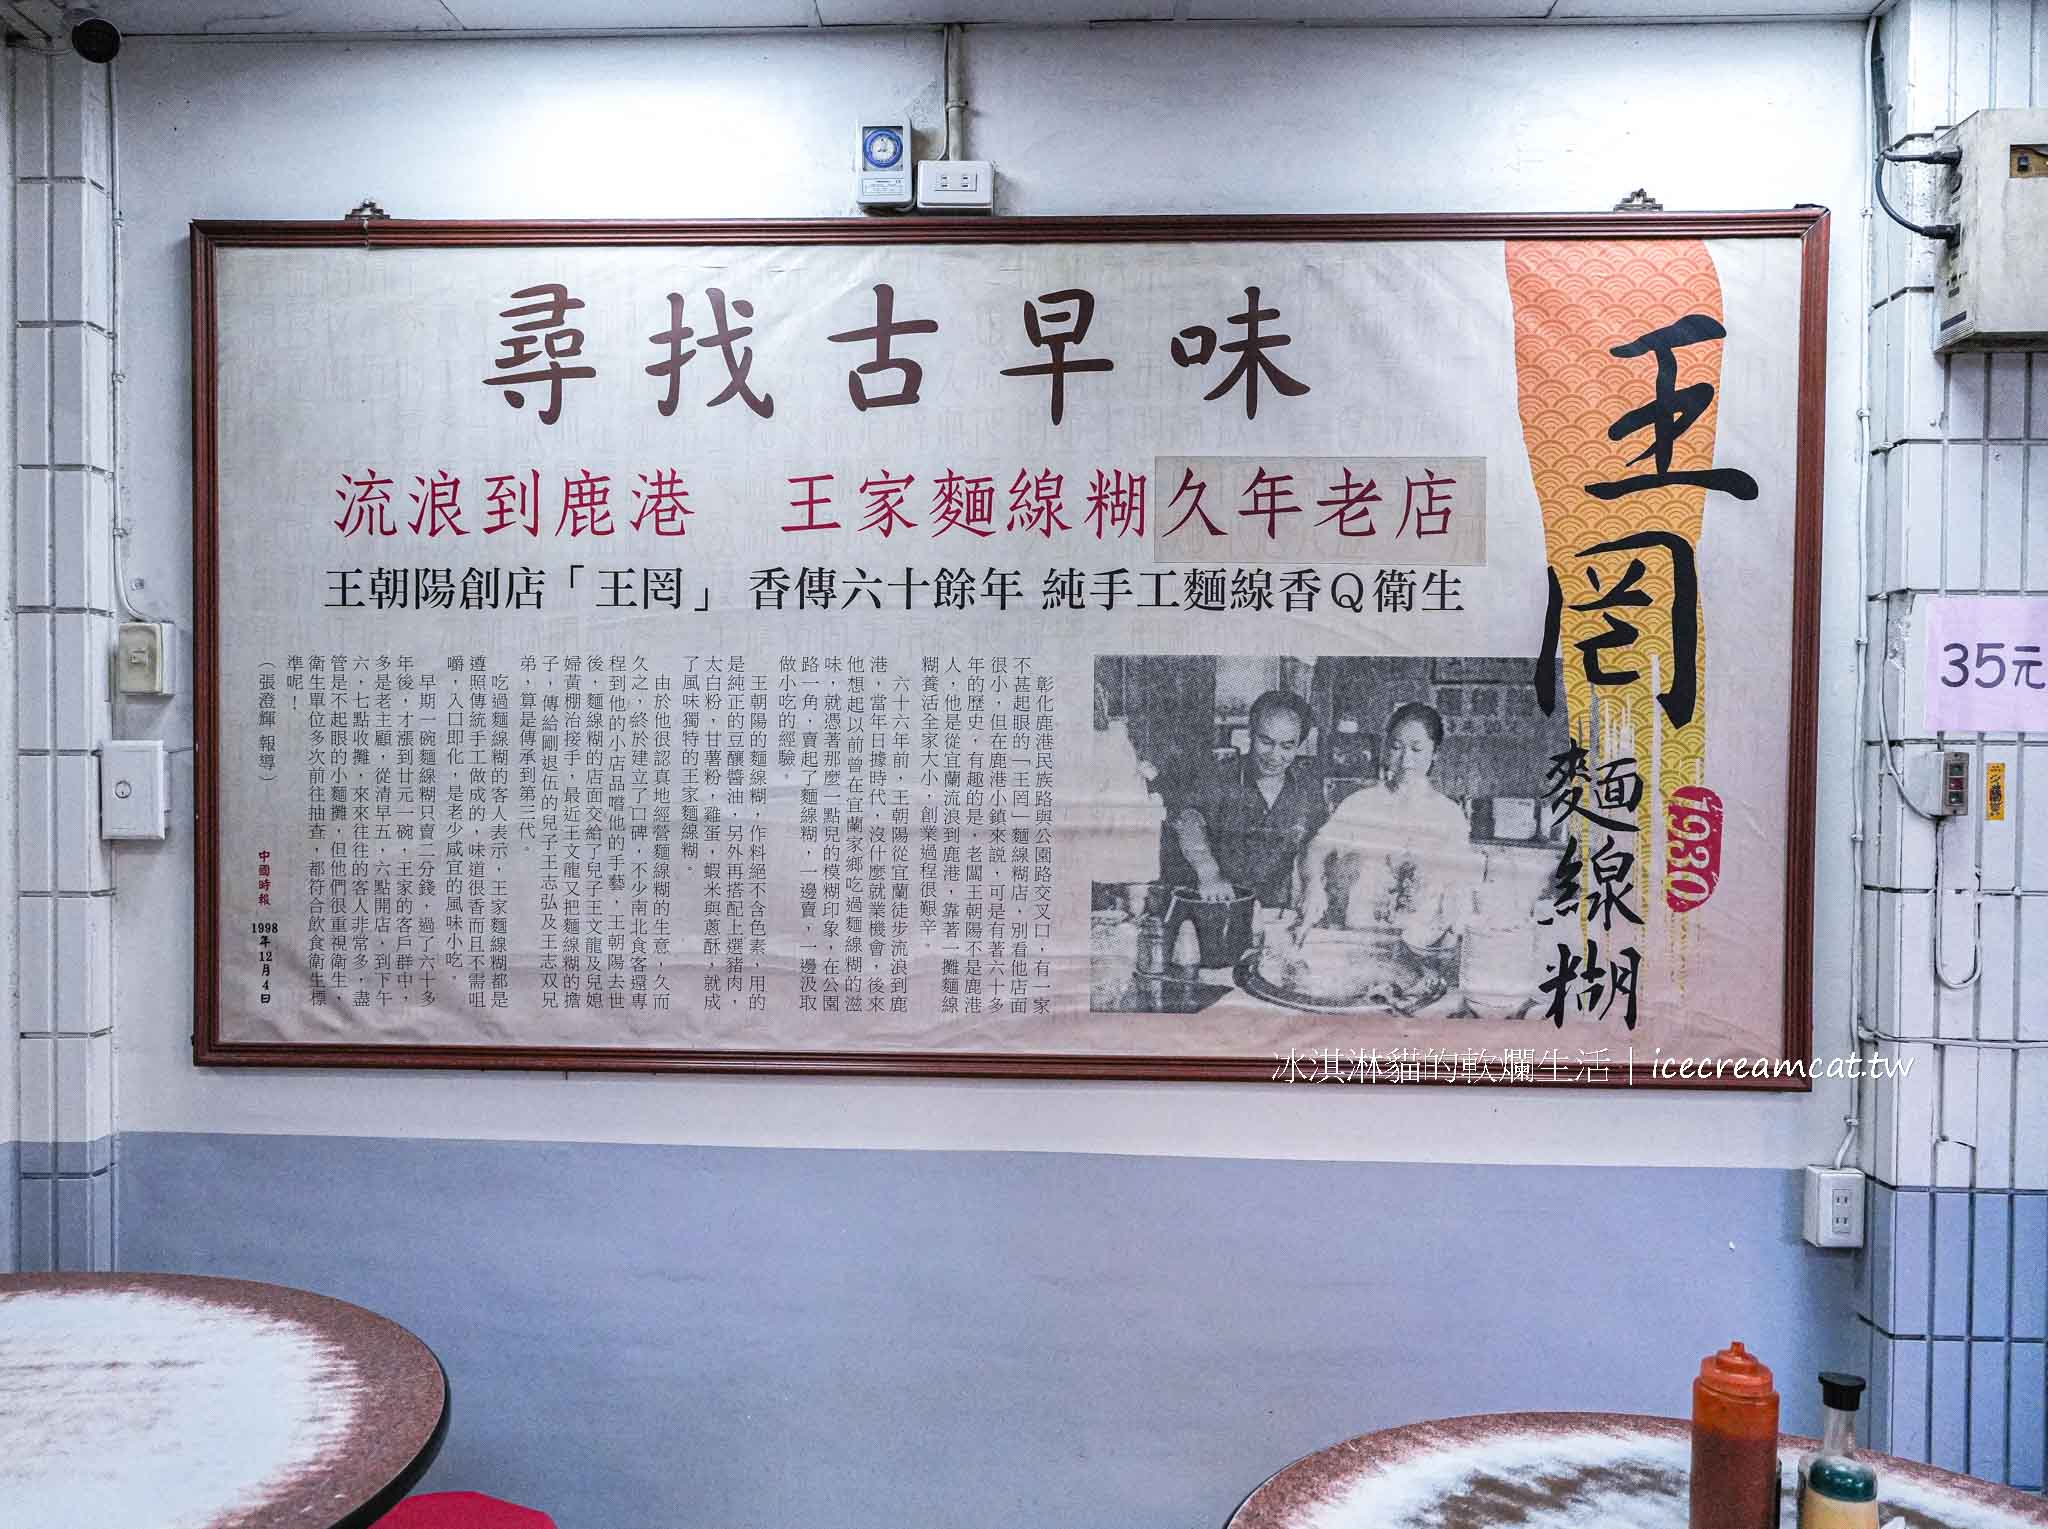 尋找古早味
流浪到鹿港 王家麵線糊久年老店
王朝陽創店「王罔」 香傳六十餘年 純手工麵線香Q衛生
王罔
麵線糊
1930
彰化鹿港民族路與公園路交叉口，有一家
不甚起眼的「王罔」麵線糊店，別看他店面
很小，但在鹿港小鎮來說，可是有著六十多
年的歷史，有趣的是，老闆王朝陽不是鹿港
人，他是從宜蘭流浪到鹿港，靠著一攤麵線
糊養活全家大小，創業過程很艱辛。
六十六年前，王朝陽從宜蘭徒步流浪到鹿
港，當年日據時代，沒什麼就業機會，後來
他想起以前曾在宜蘭家鄉吃過麵線糊的滋
味，就憑著那麼一點兒的模糊印象，在公園
路一角，賣起了麵線糊，一邊賣，一邊汲取
做小吃的經驗。
王朝陽的麵線糊，作料絕不含色素，用的
是純正的豆釀醬油，另外再搭配上選豬肉，
太白粉，甘薯粉，雞蛋，蝦米與蔥酥，就成
了風味獨特的王家麵線糊。
由於他很認真地經營麵線糊的生意，久而
久之，終於建立了口碑，不少南北食客還專
程到他的小店品嚐他的手藝，王朝陽去世
後，麵線糊的店面交給了兒子王文龍及兒媳
婦黃棚治接手，最近王文龍又把麵線糊的擔
子，傳給剛退伍的兒子王志弘及王志双兄
弟，算是傳承到第三代。
吃過麵線糊的客人表示，王家麵線糊都是
遵照傳統手工做成的，味道很香而且不需咀
嚼，入口即化，是老少咸宜的風味小吃。
早期一碗麵線糊只賣二分錢，過了六十多
年後，才漲到廿元一碗，王家的客戶群中，
多是老主顧，從清早五，六點開店，到下午
六，七點收攤，來來往往的客人非常多，儘
管是不起眼的小麵攤，但他們很重視衛生，
衛生單位多次前往抽查，都符合飲食衛生標
準呢！
（張澄輝 報導）
中國時報 1998年12月4日
35元
冰淇淋貓的軟爛生活｜icecreamcat.tw